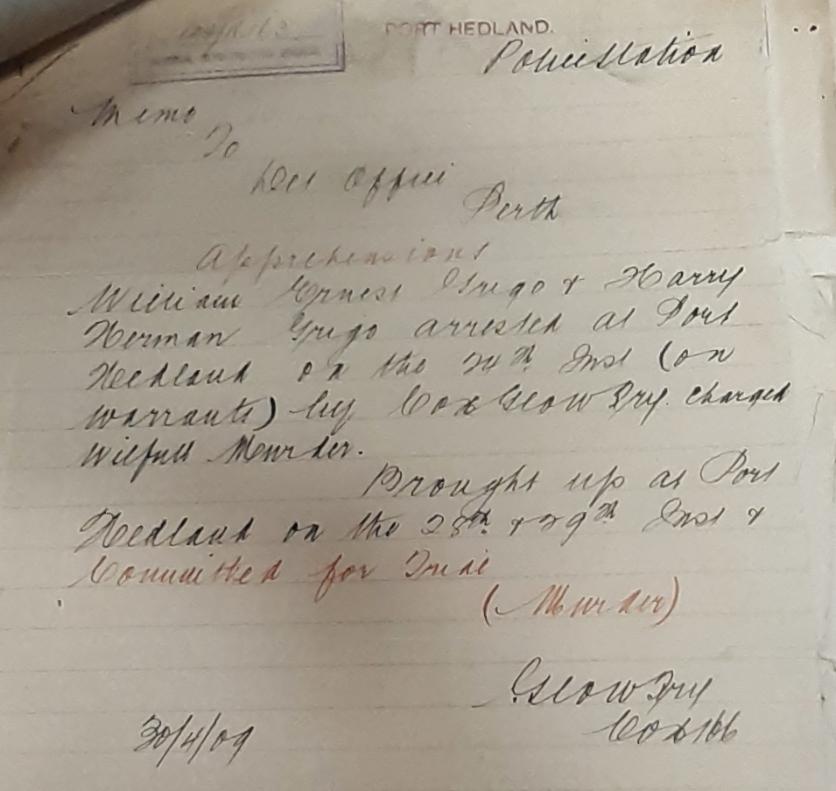 PORT HEDLAND.
Police Station
Memo
To
Det Office
Perth
Apprehensions
William Ernest Grigo & Harry
Herman Grigo arrested at Port
Hedland on the 24th Inst (on
warrants) by charged
Wilfull Murder.
Brought up at Port
Hedland on the 28th & 29th Inst &
Committed for Trial
(Murder)
30/4/09